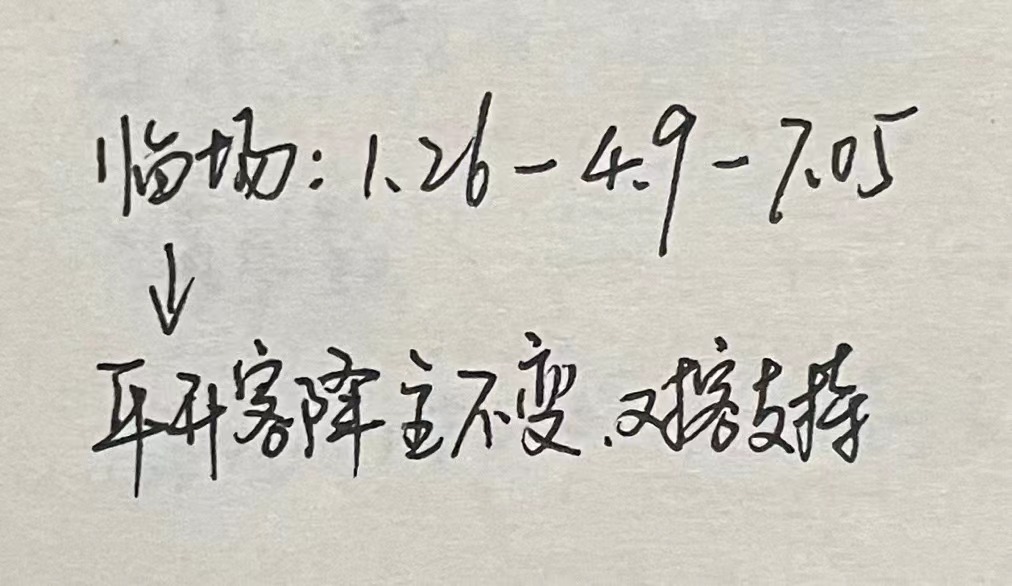 临场：1.26－4.9－7.05
↓
平升客降主不变.对客支持